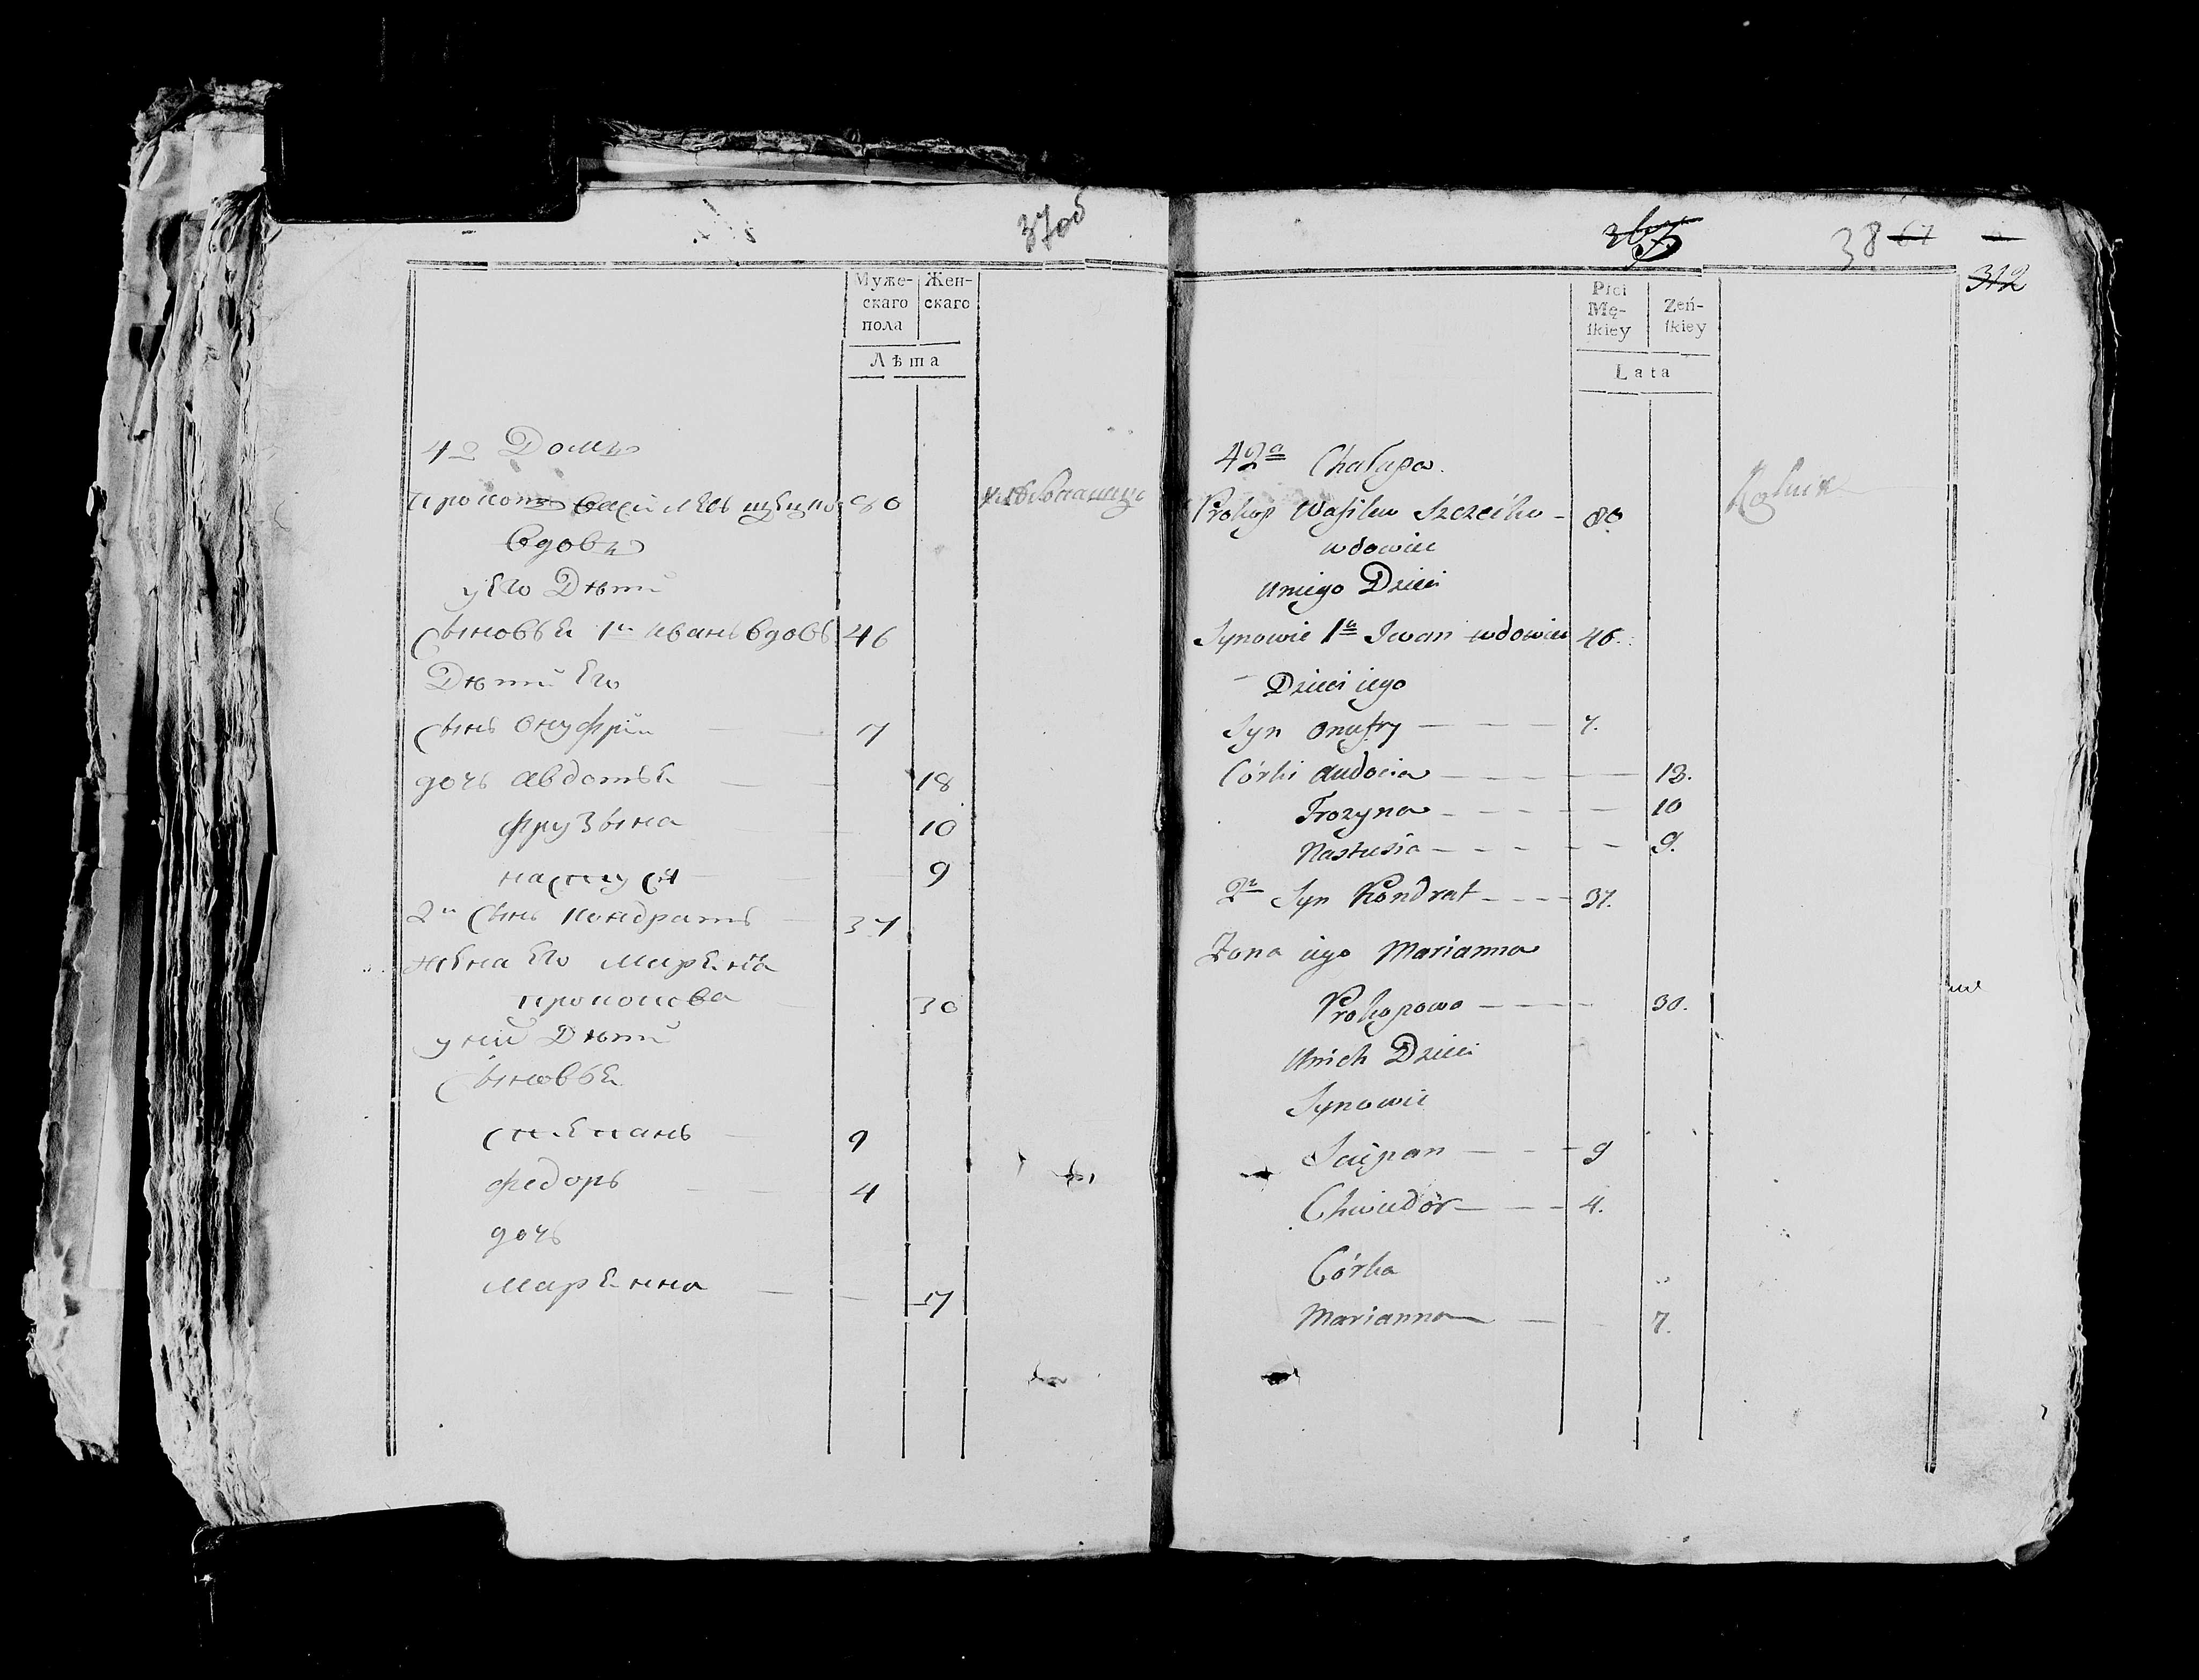 37об
Муже-
скаго
пола
Жен-
скаго
Лѣта
42 Домъ
Прокопъ Василевъ 80
вдовъ
у Его Дѣти
Сыновья 1й Иванъ вдовъ 46
Дѣти Его
Сынъ Онуфрий 7
дочь Авдотья 18
Фрузына 10
Настуся 9
2й Сынъ Кондратъ 37
Жена Его Марьяна
Прокопова 30
у нихъ Дѣти
Сыновья
Степанъ 9
Федоръ 4
дочь
Марьянна 7
38 67
312
Płci
Mę-
ſkiey
Zeń-
ſkiey
Lata
42a Chałupa.
Prokop Wasilew 80. Rolnik
wdowiec
Uniego Dzieci
Synowie 1a Iwan wdowiec 46.
Dzieci iego
Syn Onufry 7.
Córki Audocia 18.
Frozyna 10
Nastusia 9.
2i Syn Kondrat 37.
Żona iego Marianna
Prokopowa 30.
Unich Dzieci
Synowie
Sciepan 9
Chwiedor 4.
Córka
Marianna 7.